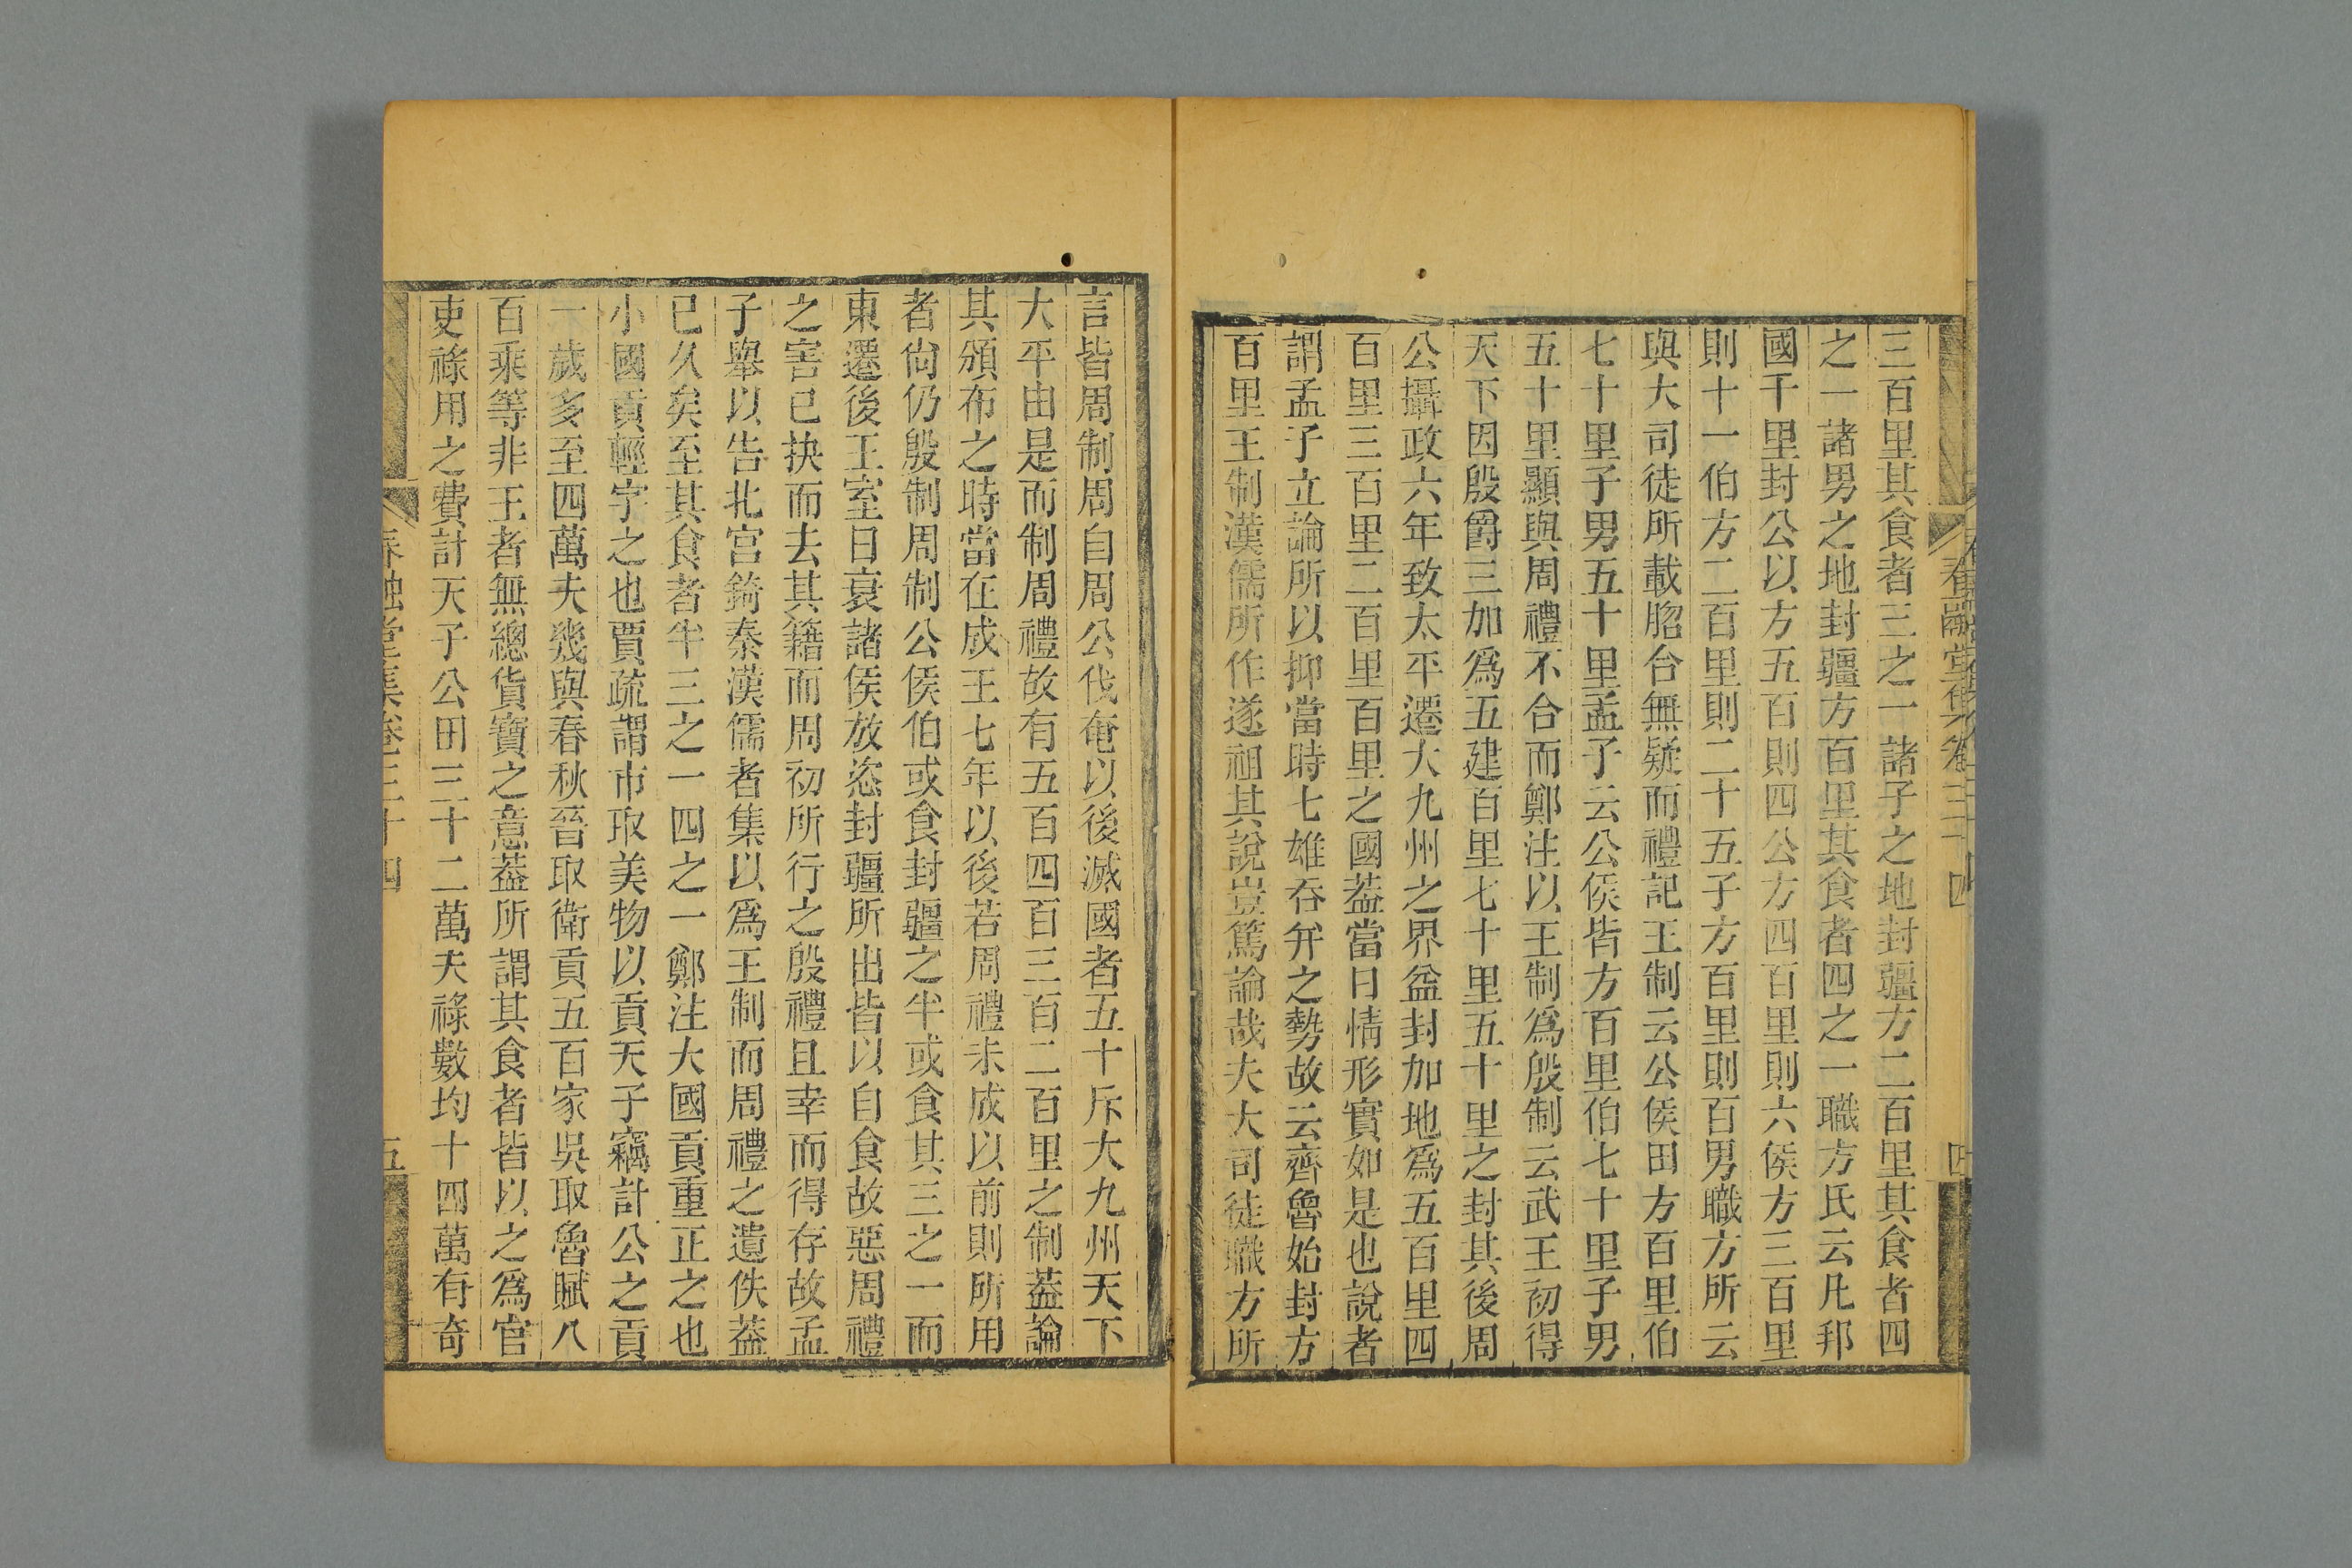 春融堂集卷三十四
四
三百里其食者三之一諸子之地封疆方二百里其食者四
之一諸男之地封疆方百里其食者四之一職方氏云凡邦
國千里封公以方五百則四公方四百里則六侯方三百里
則十一伯方二百里則二十五子方百里則百男職方所云
與大司徒所載脗合無疑而禮記王制云公侯田方百里伯
七十里子男五十里孟子云公侯皆方百里伯七十里子男
五十里顯與周禮不合而鄭注以王制爲殷制云武王初得
天下因殷爵三加爲五建百里七十里五十里之封其後周
公攝政六年致太平遷大九州之界益封加地爲五百里四
百里三百里二百里百里之國葢當日情形實如是也說者
謂孟子立論所以抑當時七雄吞幷之勢故云齊魯始封方
百里王制漢儒所作遂祖其說豈篤論哉夫大司徒職方所
言皆周制周自周公伐奄以後滅國者五十斥大九州天下
大平由是而制周禮故有五百四百三百二百里之制葢論
其頒布之時當在成王七年以後若周禮未成以前則所用
者尙仍殷制周制公侯伯或食封疆之半或食其三之一而
東遷後王室日衰諸侯放恣封疆所出皆以自食故惡周禮
之害已抉而去其籍而周初所行之殷禮且幸而得存故孟
子舉以告北宮錡秦漢儒者集以爲王制而周禮之遺佚葢
已久矣至其食者半三之一四之一鄭注大國貢重正之也
小國貢輕字之也賈疏謂市取美物以貢天子竊計公之貢
一歲多至四萬夫幾與春秋晉取衛貢五百家吳取魯賦八
百乘等非王者無總貨寶之意葢所謂其食者皆以之爲官
吏祿用之費計天子公田三十二萬夫祿數均十四萬有奇
春融堂集卷三十四
五